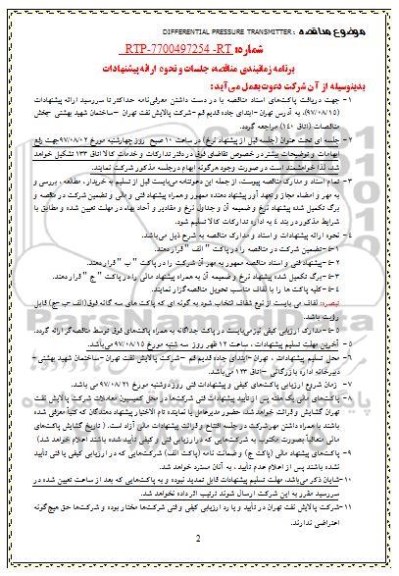 موضوع مناقصه : DIFFERENTIAL PRESSURE TRANSMITTER
شماره: RTP-7700497254 -RT
برنامه زمانبندی مناقصه، جلسات و نحوه ارائه پیشنهادات
بدینوسیله از آن شرکت دعوت بعمل می آید:
۱- جهت دریافت پاکت‌های اسناد مناقصه با در دست داشتن معرفی‌نامه حداکثر تا سررسید ارائه پیشنهادات
(۹۷/۰۸/۱۵)، به آدرس تهران -ابتدای جاده قدیم قم -شرکت پالایش نفت تهران -ساختمان شهید بهشتی -بخش
مناقصات (اتاق ۱۴۰) مراجعه گردد.
۲- جلسه ای تحت عنوان (جلسه قبل از پیشنهاد نرخ) در ساعت ۱۰ صبح روز چهارشنبه مورخ ۹۷/۰۸/۰۲ جهت رفع
ابهامات و توضیحات بیشتر در خصوص تقاضای فوق در دفتر تدارکات و خدمات کالا اتاق ۱۳۳ تشکیل خواهد
شد. لذا خواهشمند است در صورت وجود هرگونه ابهام در جلسه مذکور شرکت نمایند.
۳- تمام اسناد و مدارک مناقصه پیوست، از جمله این دعوتنامه می‌بایست قبل از تسلیم به خریدار، مطالعه ، بررسی و
به مهر و امضاء مجاز و تعهد آور پیشنهاد دهنده ممهور و همراه پیشنهاد فنی و مالی و تضمین شرکت در مناقصه و
برگ تکمیل شده پیشنهاد نرخ و ضمیمه آن و جداول نرخ و مقادیر و آحاد بهاء در مهلت تعیین شده و مطابق با
شرایط مذکور در بند ۴ به اداره تدارکات کالا تسلیم شود.
۴- نحوه ارائه پیشنهادات و اسناد و مدارک مناقصه به شرح ذیل می‌باشد.
۴-۱-تضمین شرکت در مناقصه را در پاکت " الف " قرار دهند.
۴-۲-پیشنهاد فنی و اسناد مناقصه ممهور به مهر آن شرکت را در پاکت " ب " قرار دهند.
۴-۳-برگ تکمیل شده پیشنهاد نرخ و ضمیمه آن به همراه پیشنهاد مالی را در پاکت " ج " قرار دهند.
۴-۴-کلیه پاکت ها را با لفاف مناسب تحویل مناقصه‌گزار نمایند.
تبصره: لفاف می بایست از نوع شفاف انتخاب شود به گونه ای که پاکت های سه گانه فوق (الف -ب -ج) قابل
رؤیت باشد.
۴-۵-مدارک ارزیابی کیفی نیز می‌بایست در پاکت جداگانه به همراه پاکت‌های فوق توسط مناقصه‌گر ارائه گردد.
۵- آخرین مهلت تسلیم پیشنهادات ، ساعت ۱۲ ظهر روز سه شنبه مورخ ۹۷/۰۸/۱۵ می‌باشد.
۶- محل تسلیم پیشنهادات ، تهران -ابتدای جاده قدیم قم -شرکت پالایش نفت تهران -ساختمان شهید بهشتی-
دبیرخانه اداره بازرگانی -اتاق ۱۳۳ می‌باشد.
۷- زمان شروع ارزیابی پاکت‌های کیفی و پیشنهادات فنی روز دوشنبه مورخ ۹۷/۰۸/۲۱ می باشد.
۸- پاکت‌های مالی یک هفته پس از تایید پیشنهادات فنی شرکت‌ها در محل کمیسیون معاملات شرکت پالایش نفت
تهران گشایش و قرائت خواهد شد، حضور مدیرعامل یا نماینده تام الاختیار پیشنهاد دهندگان که کتباً معرفی شده
باشند با همراه داشتن مهر شرکت در جلسه افتتاح و قرائت پیشنهادات مالی آزاد است. ( تاریخ گشایش پاکت‌های
مالی متعاقباً بصورت مکتوب به شرکت‌هایی که در ارزیابی فنی و کیفی تایید شده باشند اعلام خواهد شد)
۹- پاکت‌های پیشنهاد مالی (پاکت ج) و ضمانت نامه (پاکت الف) شرکت‌هایی که در ارزیابی کیفی یا فنی تایید
نشده باشند پس از اعلام عدم تأیید ، به آنان مسترد خواهد شد.
۱۰-شایان ذکر می‌باشد، مهلت تسلیم پیشنهادات قابل تمدید نبوده و به پاکت‌هایی که بعد از ساعت تعیین شده در
سررسید مقرر به این شرکت ارسال شوند ترتیب اثر داده نخواهد شد.
۱۱-شرکت پالایش نفت تهران در تأیید و یا رد ارزیابی کیفی و فنی شرکت‌ها مختار بوده و شرکت‌ها حق هیچ‌گونه
اعتراضی ندارند.
2